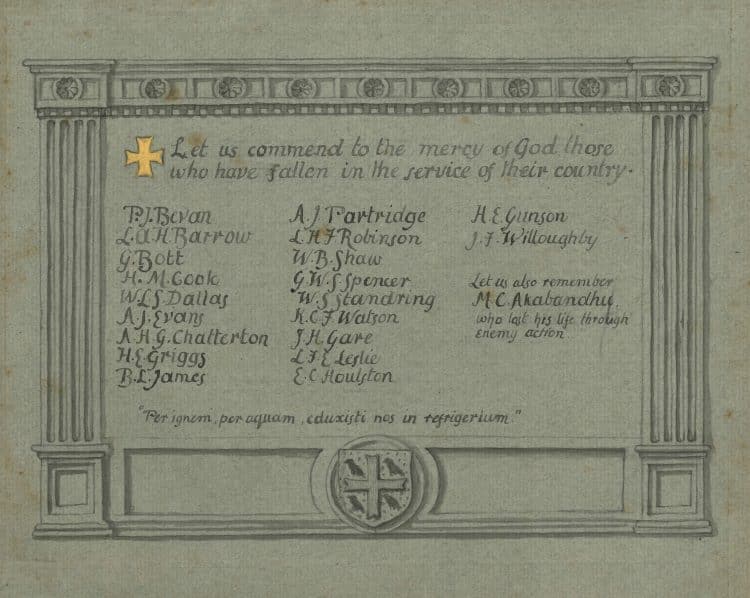 Let us commend to the mercy of God those
who have fallen in the service of their country.
P.J. Bevan
L.A.H. Barrow
G. Bott
H. M. Cook
W.L.S. Dallas
A.J. Evans
A.H.G. Chatterton
H.E. Griggs
B.L. James
A.J Partridge
L.H.F Robinson
W.B. Shaw
G.W.S Spencer
W.S Standring
K.C.F Watson
J.H. Gare
L.F.E Leslie
E.C Houlston
H.E Gunson
J.F. Willoughby
Let us also remember
M.C. Akabandhu,
who lost his life through
enemy action.
"Per ignem, per aquam, eduxisti nos in refrigerium."